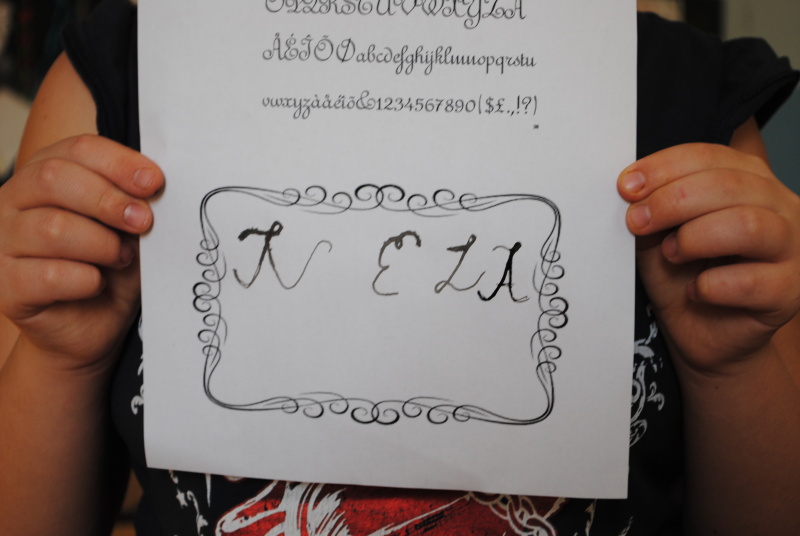 OPQRSTUVWXYZÀ
ÅÉÎÕØabcdefghijklmnopqrstu
vwxyzàåéîõ&1234567890($£.,!?)
N ELA